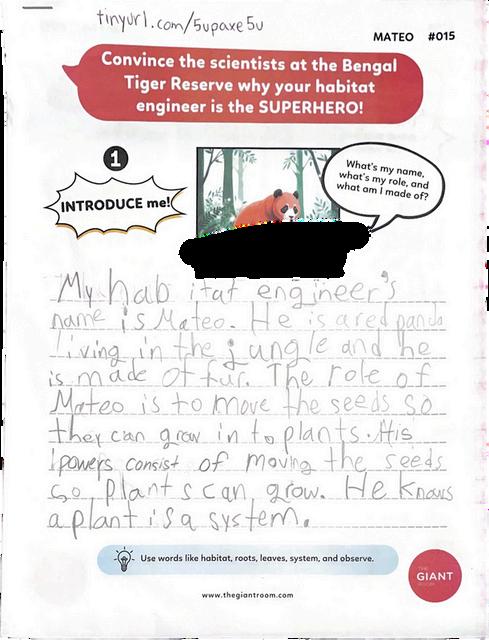 tinyurl.com/5upaxe5u
MATEO #015
Convince the scientists at the Bengal
Tiger Reserve why your habitat
engineer is the SUPERHERO!
1
INTRODUCE me!
What's my name,
what's my role, and
what am I made of?
My hab itat engineer's
name is Mateo. He is a red panda
living in the jungle and he
is made of fur. The role of
Mateo is to move the seeds so
they can grow in to plants. His
powers consist of moving the seeds
so plants can grow. He knows
a plant is a system.
Use words like habitat, roots, leaves, system, and observe.
THE
GIANT
ROOM
www.thegiantroom.com